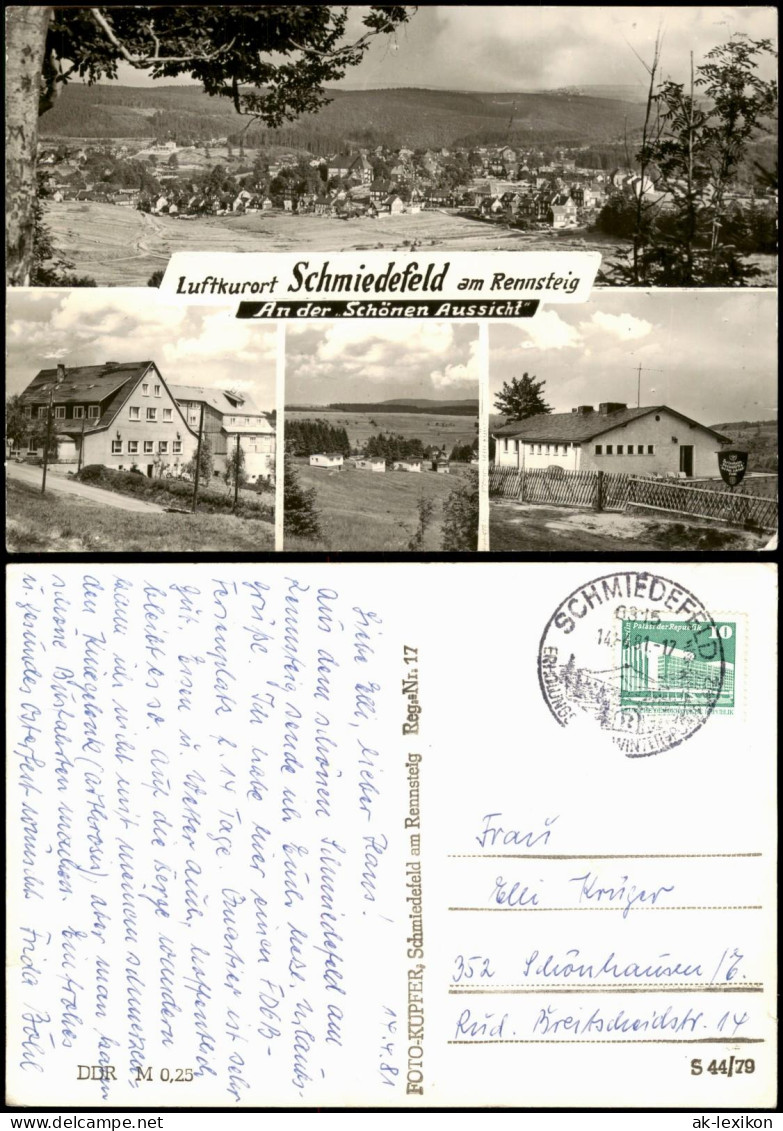 Luftkurort Schmiedefeld am Rennsteig
An der „Schönen Aussicht"
Liebe Elli, lieber Hans!
14.4.81
Aus dem schönen Schmiedefeld am
Rennsteig sende ich Euch herzl. Urlaubs-
grüße. Ich habe hier einen FDGB-
Ferienplatz f. 14 Tage. Quartier ist sehr
gut. Essen u. Wetter auch, hoffentlich
bleibt es so. Auf die Berge wandern
kann ich nicht mit meinen schmerzen-
den Kniegelenk (Arthrosis), aber man kann
schöne Busfahrten machen. Ein frohes
u. gesundes Osterfest wünscht Frida Böhl
DDR M 0,25
FOTO-KUPFER, Schmiedefeld am Rennsteig Reg.-Nr. 17
SCHMIEDEFELD
Palast der Republik
10
Frau
Elli Krüger
352 Schönhausen/E.
Rud. Breitscheidstr. 14
S 44/79
ak-lexikon